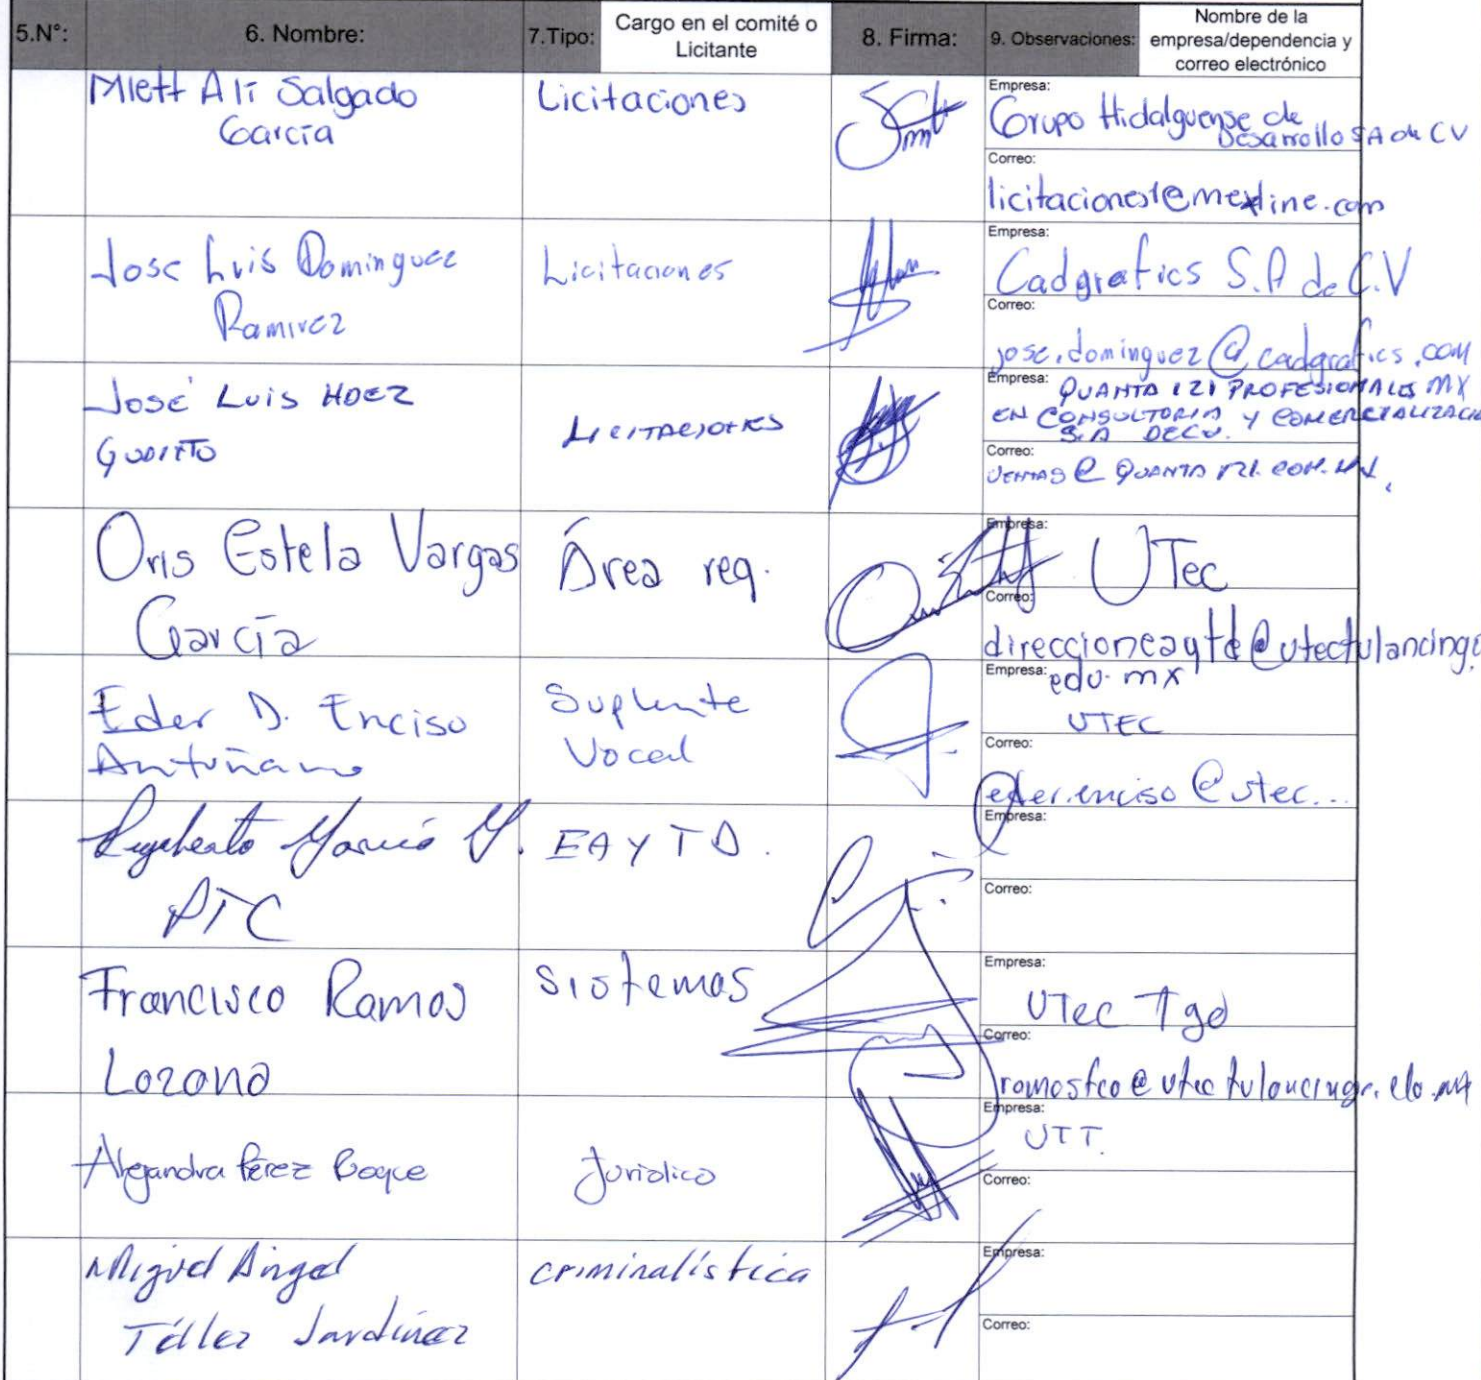 5.N°: 6. Nombre: 7.Tipo: Cargo en el comité o Licitante 8. Firma: 9. Observaciones: Nombre de la empresa/dependencia y correo electrónico
Mlett Ali Salgado
García
Licitaciones
Empresa:
Grupo Hidalguense de
Desarrollo SA de CV
Correo:
licitaciones1@mexline.com
Jose Luis Dominguez
Ramirez
Licitaciones
Empresa:
Cadgrafics S.A de C.V
Correo:
jose.dominguez@cadgrafics.com
José Luis HDEZ
GUDIÑO
LICITACIONES
Empresa: QUANTA 121 PROFESIONALES MX
EN CONSULTORIA Y COMERCIALIZACI
S.A DE CV.
Correo:
VENTAS @ QUANTA 121. COM. MX
Oris Estela Vargas
García
Área req.
Empresa:
UTec
Correo:
direccioneaytd@utectulancingo
edu.mx
Eder D. Enciso
Antuñano
Suplente
Vocal
Empresa:
UTEC
Correo:
eder.enciso@utec...
García
PTC
EAYTD.
Empresa:
Correo:
Francisco Ramos
Lozano
Sistemas
Empresa:
UTec Tgo
Correo:
ramosfco@utectulancingo.
Alejandra Pérez Roque
Jurídico
Empresa:
UTT.
Correo:
Miguel Angel
Téllez Jardínez
criminalística
Empresa:
Correo: